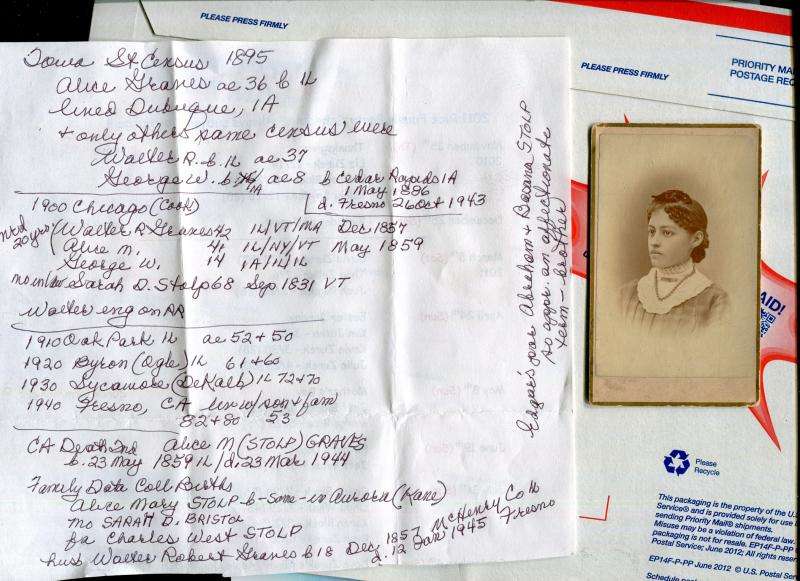 PLEASE PRESS FIRMLY
PLEASE PRESS FIRMLY
PRIORITY MA
POSTAGE REQ
Iowa St Census 1895
Alice Graves ae 36 b IL
lived Dubuque, IA
+ only other same census were
Walter R. b. IL ae 37
George W. b IA ae 8 b Cedar Rapids IA
1 May 1886
d. Fresno 26 Oct 1943
1900 Chicago (Cook)
mrd 20 yrs
(Walter R Graves 42 IL/VT/MA Dec 1857
(Alice M. 41 IL/NY/VT May 1859
George W. 14 IA/IL/IL
mo in law Sarah D. Stolp 68 Sep 1831 VT
Walter eng on RR
1910 Oak Park IL ae 52 + 50
1920 Byron (Ogle) IL 61 + 60
1930 Sycamore (DeKalb) IL 72 + 70
1940 Fresno, CA liv w/ son + fam
82 + 80 53
CA Death Ind Alice M (STOLP) GRAVES
b. 23 May 1859 IL / d. 23 Mar 1944
Family Data Coll Births
Alice Mary STOLP b-same-in Aurora (Kane)
mo SARAH D. BRISTOL
fa Charles West STOLP
hus Walter Robert Graves b 18 Dec 1857 McHenry Co IL
d. 12 Jan 1945 Fresno
Edgar's par Abraham + STOLP
so appar. an affectionate
term - brother
AID!
Please
Recycle
This packaging is the property of the U.S.
Service® and is provided solely for use i
sending Priority Mail® shipments.
Misuse may be a violation of federal law.
packaging is not for resale. EP14F-P-PP
Postal Service; June 2012; All rights
EP14F-P-PP June 2012 © U.S. Postal Servi